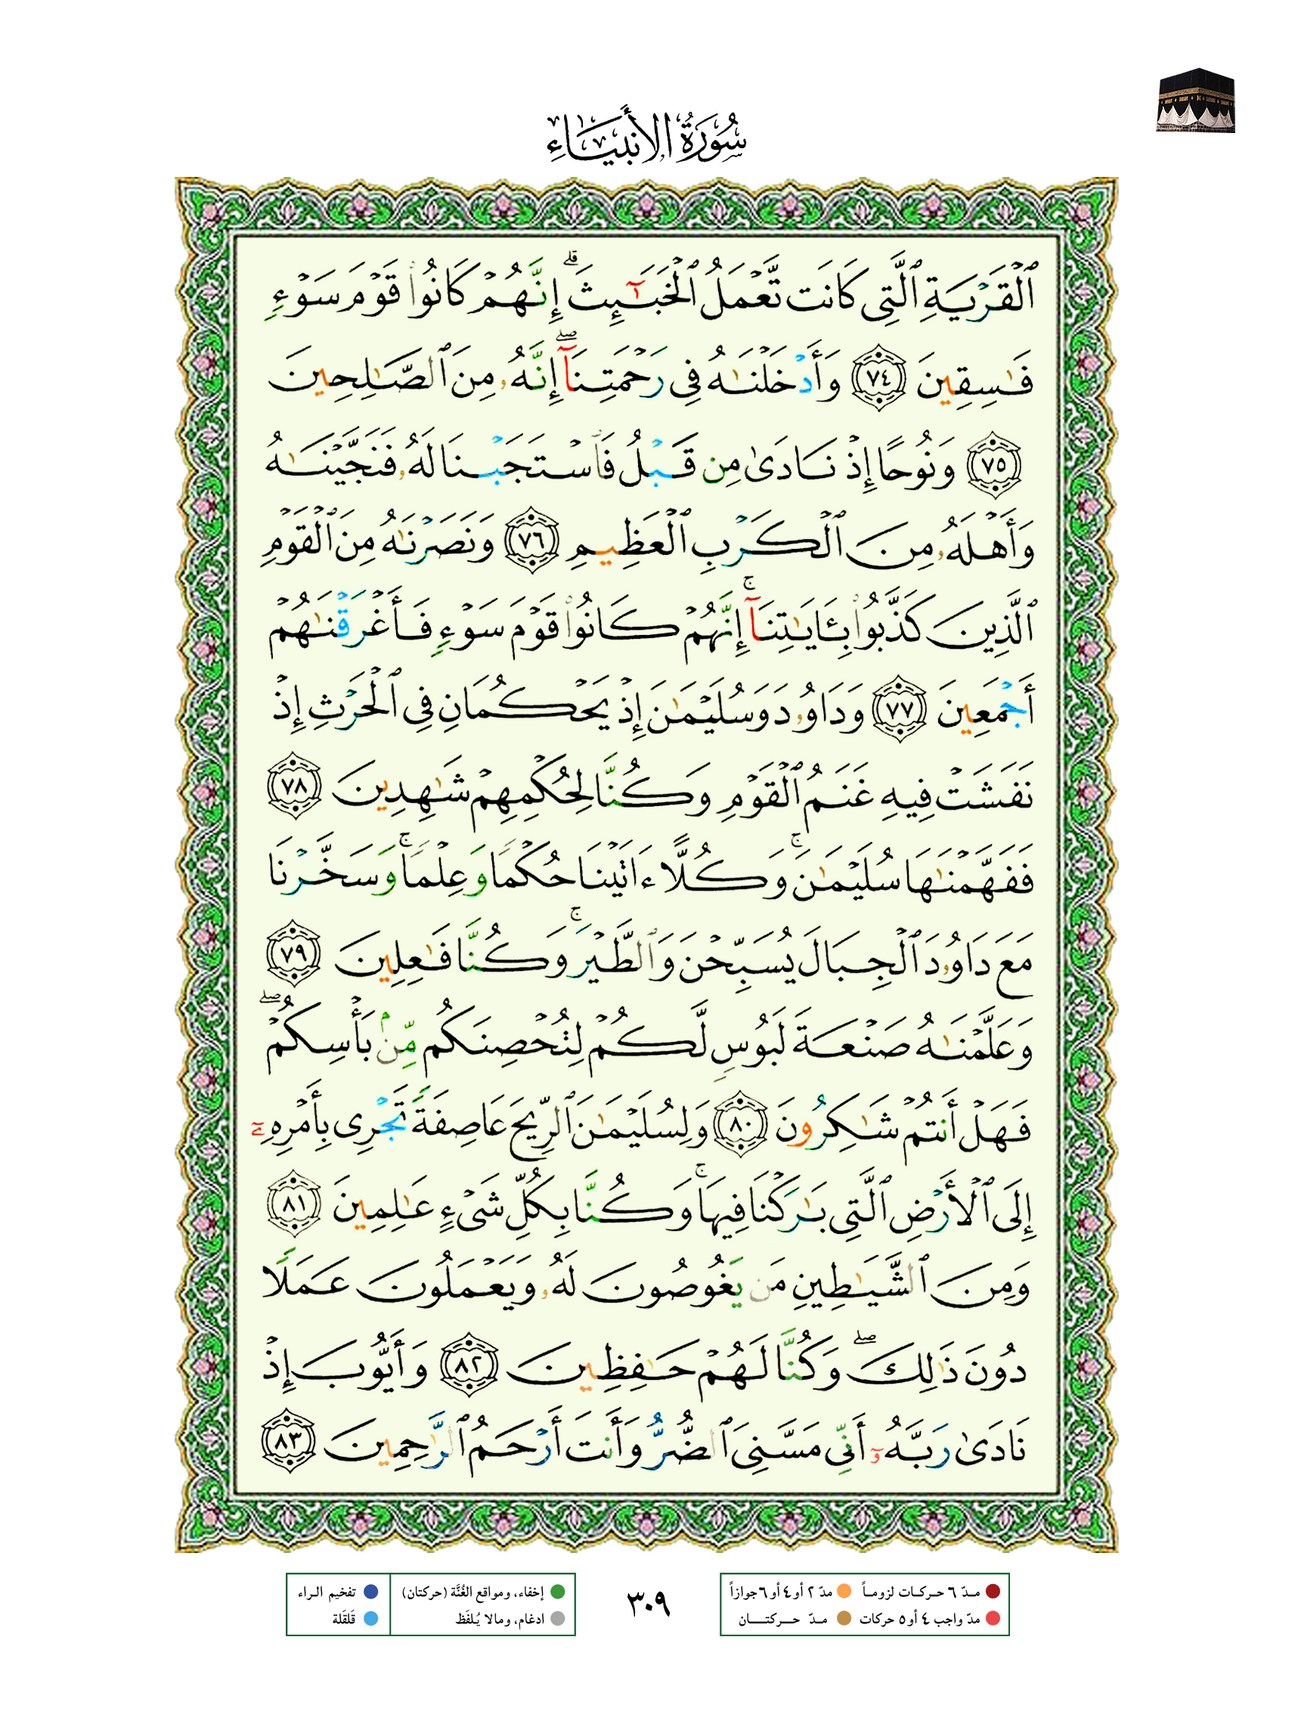 سُورَةُ الأَنبِيَاءِ
ٱلْقَرْيَةِ ٱلَّتِى كَانَت تَّعْمَلُ ٱلْخَبَـٰٓئِثَ ۗ إِنَّهُمْ كَانُوا۟ قَوْمَ سَوْءٍ
فَـٰسِقِينَ ﴿٧٤﴾ وَأَدْخَلْنَـٰهُ فِى رَحْمَتِنَآ ۖ إِنَّهُۥ مِنَ ٱلصَّـٰلِحِينَ
﴿٧٥﴾ وَنُوحًا إِذْ نَادَىٰ مِن قَبْلُ فَٱسْتَجَبْنَا لَهُۥ فَنَجَّيْنَـٰهُ
وَأَهْلَهُۥ مِنَ ٱلْكَرْبِ ٱلْعَظِيمِ ﴿٧٦﴾ وَنَصَرْنَـٰهُ مِنَ ٱلْقَوْمِ
ٱلَّذِينَ كَذَّبُوا۟ بِـَٔايَـٰتِنَآ ۚ إِنَّهُمْ كَانُوا۟ قَوْمَ سَوْءٍ فَأَغْرَقْنَـٰهُمْ
أَجْمَعِينَ ﴿٧٧﴾ وَدَاوُۥدَ وَسُلَيْمَـٰنَ إِذْ يَحْكُمَانِ فِى ٱلْحَرْثِ إِذْ
نَفَشَتْ فِيهِ غَنَمُ ٱلْقَوْمِ وَكُنَّا لِحُكْمِهِمْ شَـٰهِدِينَ ﴿٧٨﴾
فَفَهَّمْنَـٰهَا سُلَيْمَـٰنَ ۚ وَكُلًّا ءَاتَيْنَا حُكْمًا وَعِلْمًا ۚ وَسَخَّرْنَا
مَعَ دَاوُۥدَ ٱلْجِبَالَ يُسَبِّحْنَ وَٱلطَّيْرَ ۚ وَكُنَّا فَـٰعِلِينَ ﴿٧٩﴾
وَعَلَّمْنَـٰهُ صَنْعَةَ لَبُوسٍ لَّكُمْ لِتُحْصِنَكُم مِّنۢ بَأْسِكُمْ ۖ
فَهَلْ أَنتُمْ شَـٰكِرُونَ ﴿٨٠﴾ وَلِسُلَيْمَـٰنَ ٱلرِّيحَ عَاصِفَةً تَجْرِى بِأَمْرِهِۦٓ
إِلَى ٱلْأَرْضِ ٱلَّتِى بَـٰرَكْنَا فِيهَا ۚ وَكُنَّا بِكُلِّ شَىْءٍ عَـٰلِمِينَ ﴿٨١﴾
وَمِنَ ٱلشَّيَـٰطِينِ مَن يَغُوصُونَ لَهُۥ وَيَعْمَلُونَ عَمَلًا
دُونَ ذَٰلِكَ ۖ وَكُنَّا لَهُمْ حَـٰفِظِينَ ﴿٨٢﴾ وَأَيُّوبَ إِذْ
نَادَىٰ رَبَّهُۥٓ أَنِّى مَسَّنِىَ ٱلضُّرُّ وَأَنتَ أَرْحَمُ ٱلرَّٰحِمِينَ ﴿٨٣﴾
مدّ ٦ حركات لزوماً مدّ ٢ أو ٤ أو ٦ جوازاً
مدّ واجب ٤ أو ٥ حركات مدّ حركتان
٣٠٩
إخفاء، ومواقع الغُنَّة (حركتان) تفخيم الراء
ادغام، ومالا يُلفَظ قلقلة